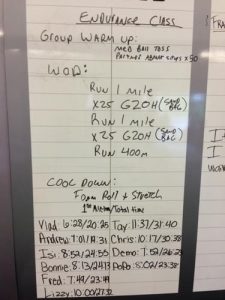 ENDURANCE CLASS
GROUP WARM UP:
MED BALL TOSS
PARTNER x50
WOD:
RUN 1 MILE
x25 G2OH (SAND BAG)
RUN 1 MILE
x25 G2OH (SAND BAG)
RUN 400m
COOL DOWN:
FOAM ROLL & STRETCH
1st Metcon/Total time
Vlad: 6:28/20:25
Tay: 11:37/31:40
Andrew: 7:01/19:31
Chris: 10:17/30:38
Isi: 8:52/24:55
Demo: 7:52/26:23
Bonnie: 8:13/24:13
PoPo: 8:02/23:38
Fred: 7:49/23:49
Lizzy: 10:00/27:32